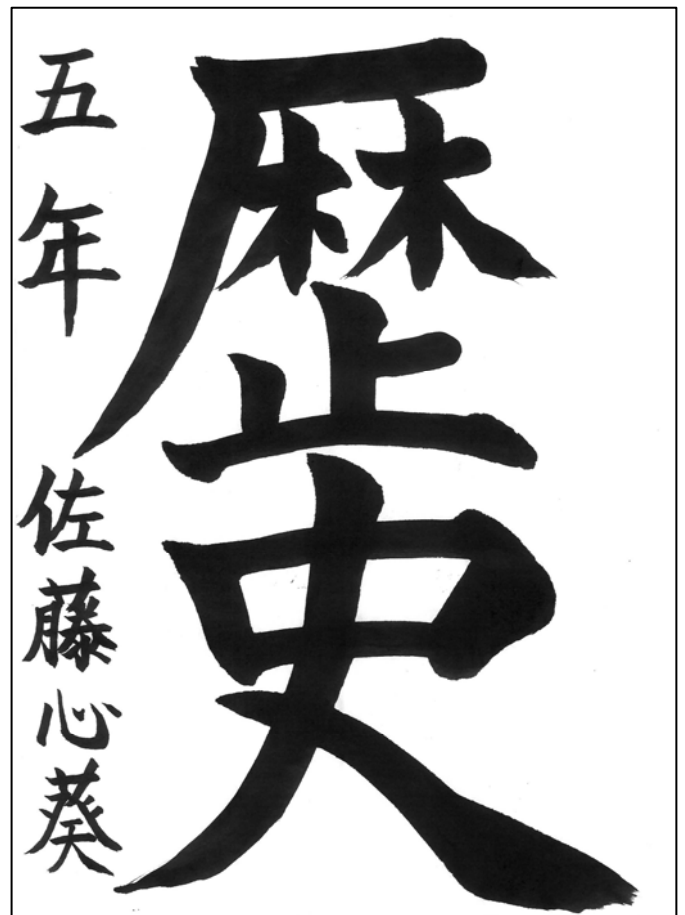 歴史
五年 佐藤心葵